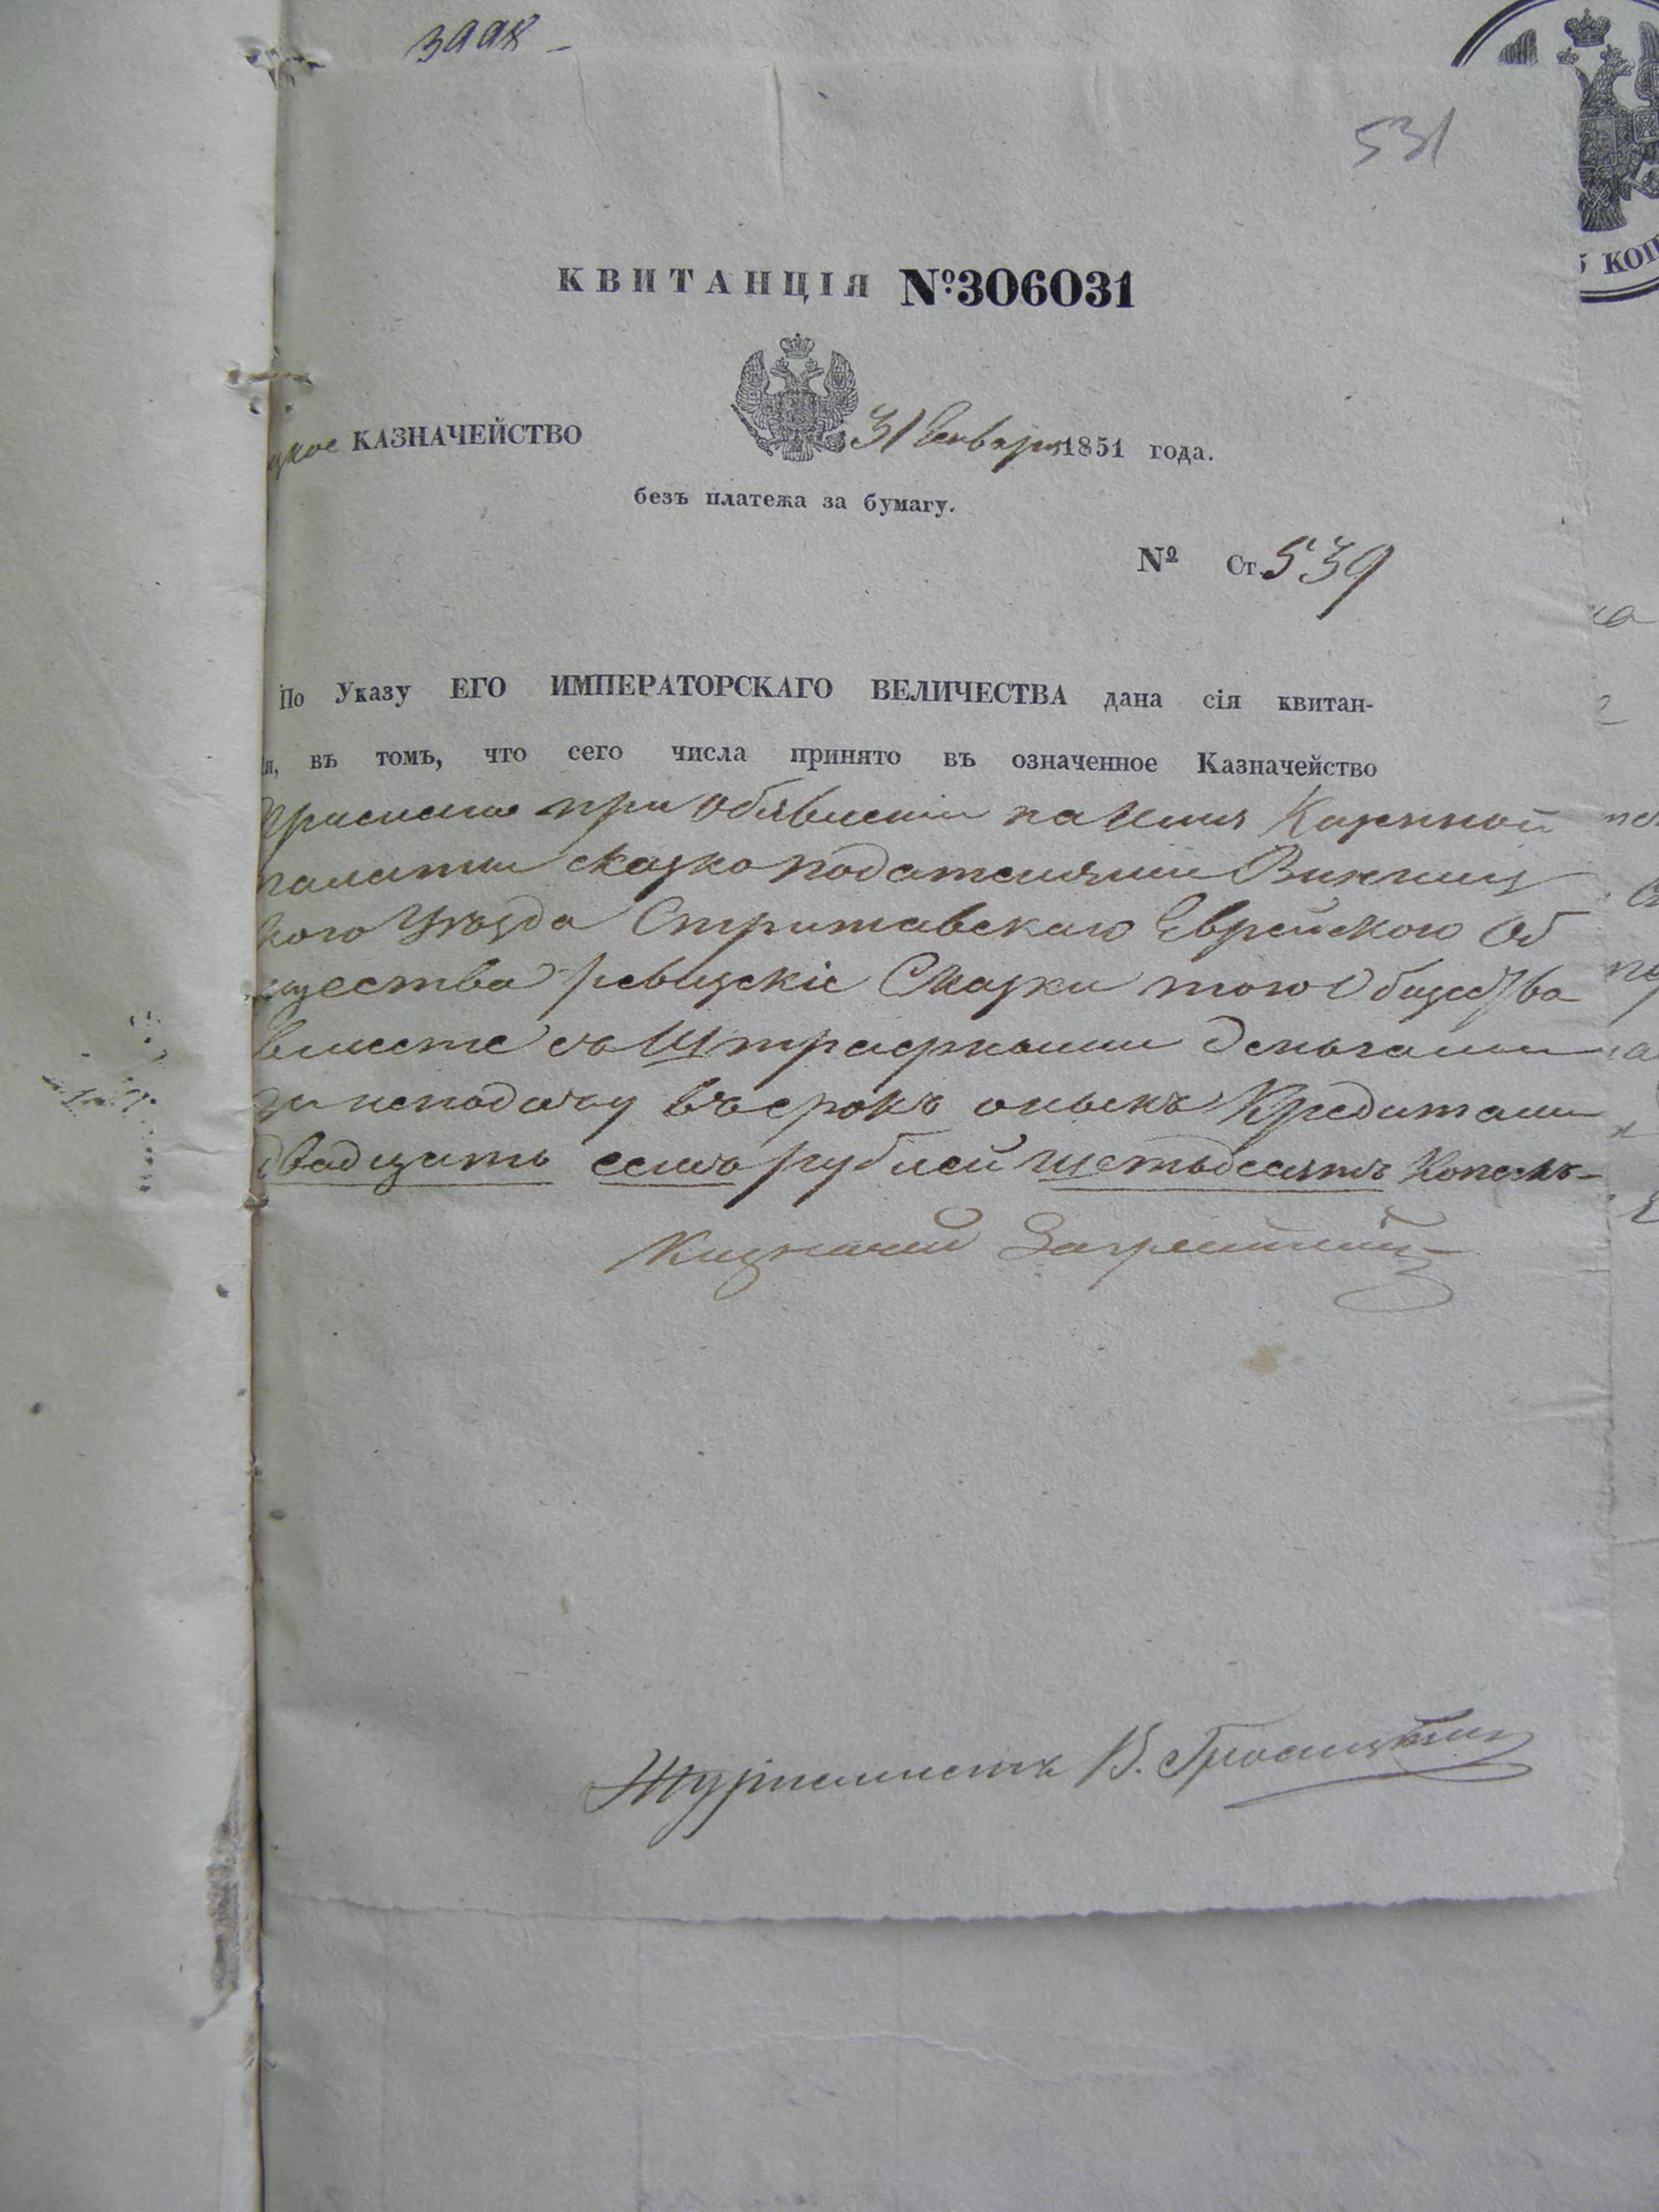 531
5 КОП
КВИТАНЦІЯ №306031
цкое КАЗНАЧЕЙСТВО
31 Генваря 1851 года.
безъ платежа за бумагу.
№ Ст. 539
По Указу ЕГО ИМПЕРАТОРСКАГО ВЕЛИЧЕСТВА дана сія квитан-
я, въ томъ, что сего числа принято въ означенное Казначейство
при объявленіи на имя Казенной
палаты сказкоподателями Винниц
кого Уѣзда Стрижавскаго Еврейского Об
щества ревизскіе Сказки того Общества
вместе съ Штрафными деньгами
за неподачу въ срокъ оныхъ Кредитами
двадцать семь рублей шетьдесятъ Копеекъ-
Казначей
Журналистъ В.